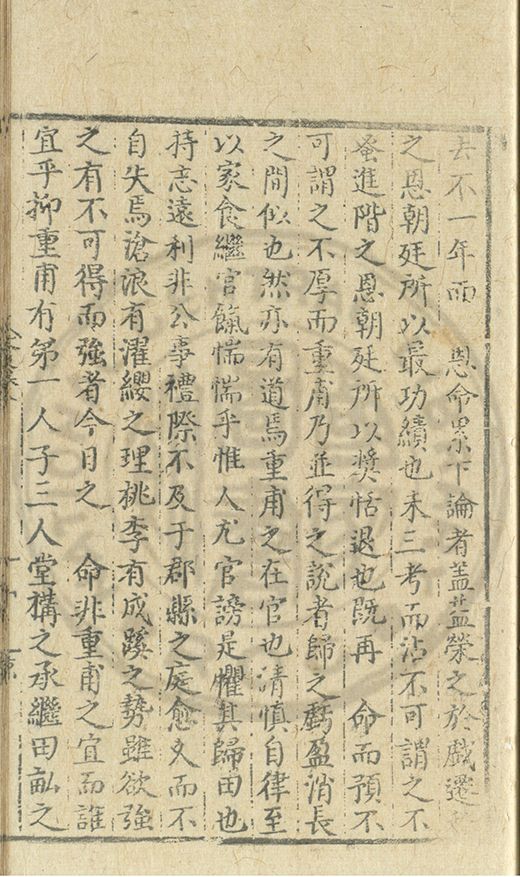 去不一年而　恩命累下論者蓋益榮之於戲遷
之恩朝廷所以最功績也未三考而沾不可謂之不
蚤進階之恩朝廷所以奬恬退也既再　命而預不
可謂之不厚而重甫乃並得之說者歸之虧盈消長
之間似也然亦有道焉重甫之在官也清慎自律至
以家食繼官餼惴惴乎惟人尤官謗是懼其歸田也
持志遠利非公事禮際不及于郡縣之庭愈久而不
自失焉滄浪有濯纓之理桃李有成蹊之勢雖欲強
之有不可得而強者今日之　命非重甫之宜而誰
宜乎抑重甫有第一人子三人堂構之承繼田畝之